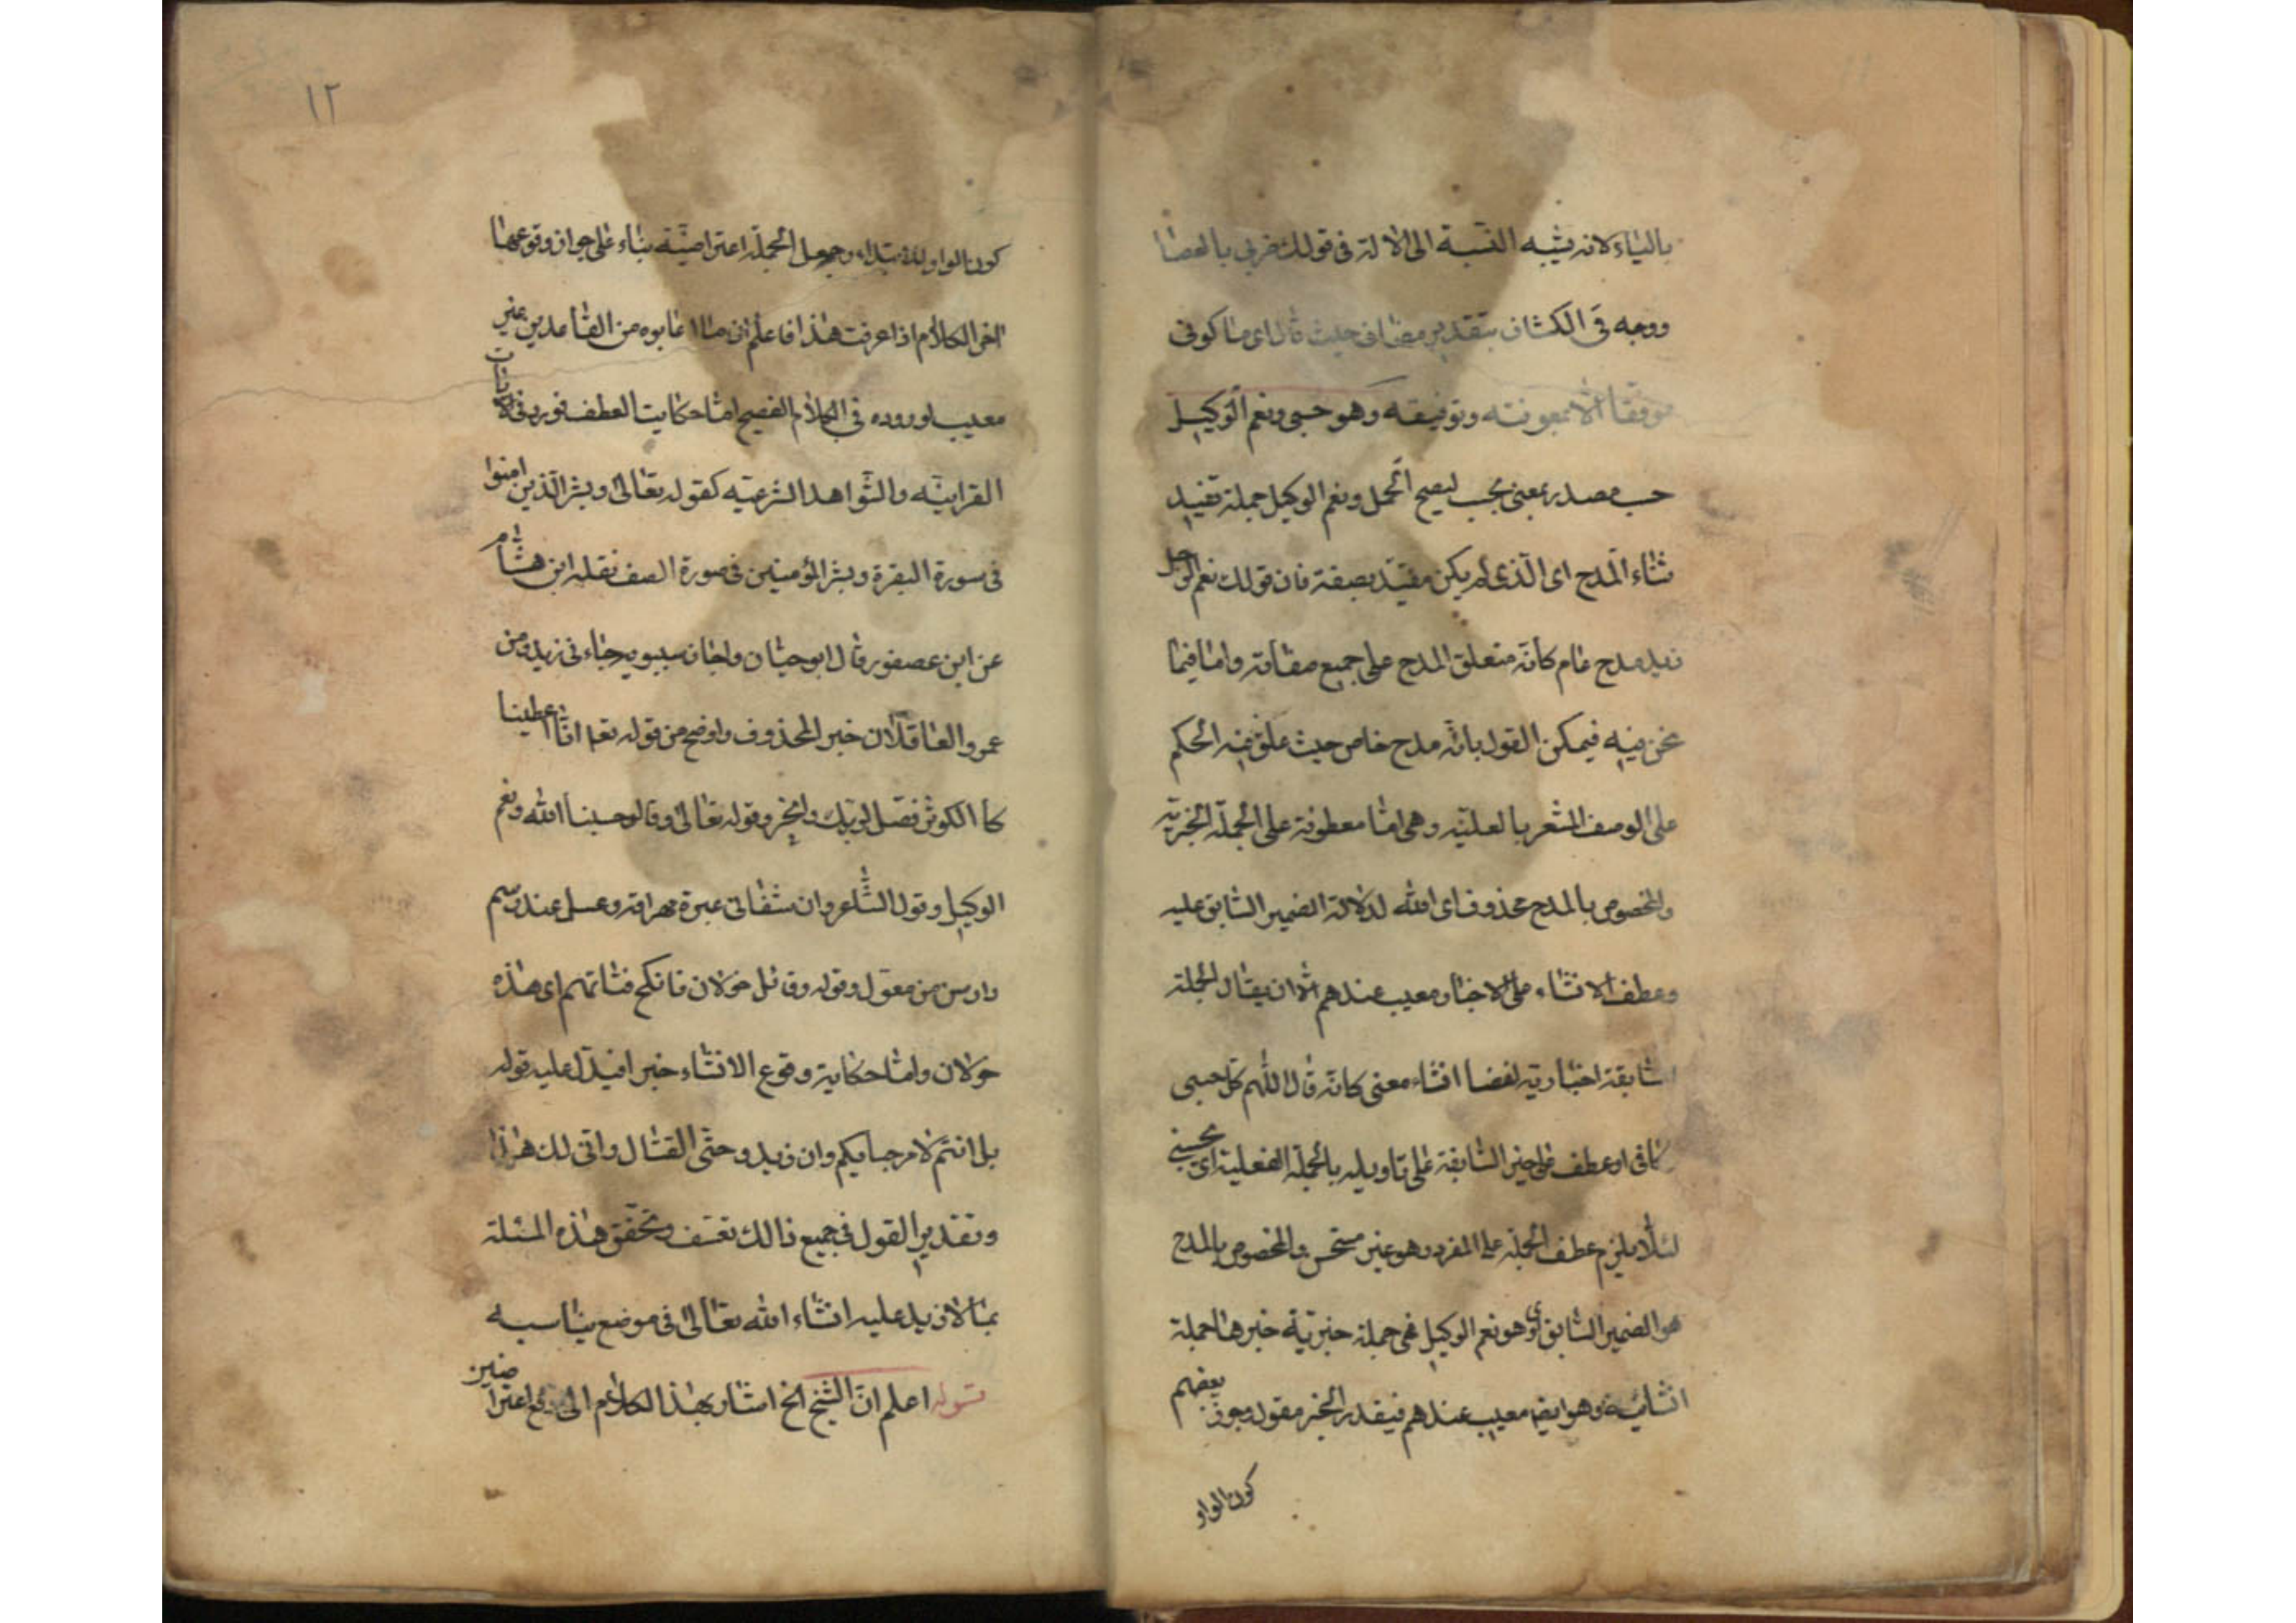 بالياء لانه يشبه النسبة الى الالة في قولك ضربي بالعصا
ووجه في الكشاف بتقدير مضاف حيث قال اى وما كوني
موفقا الا بمعونته وتوفيقه وهو حسبى ونعم الوكيل
حسب مصدر بمعنى محسب ليصح الحمل ونعم الوكيل جملة تفيد
ثناء المدح اى الذى لم يكن مقيد بصفة فان قولك نعم الرجل
زيد مدح عام كانه متعلق المدح على جميع صفاته واما فيما
نحن فيه فيمكن القول بانه مدح خاص حيث علق فيه الحكم
على الوصف المشعر بالعلية وهى اما معطوفة على الجملة الخبرية
والمخصوص بالمدح محذوف اى الله لدلالة الضمير السابق عليه
وعطف الانشاء على الاخبار معيب عندهم الا ان يقال الجملة
السابقة اخبارية لفضا انشاء معنى كانه قال اللهم كن حسبى
كافى او عطف على خبر السابقة على تاويله بالجملة الفعلية اى يحسبنى
لئلا يلزم عطف الجملة على المفرد وهو غير مستحسن والمخصوص بالمدح
هو الضمير السابق اى وهو نعم الوكيل فهى جملة خبرية خبرها جملة
انشائية وهو ايضا معيب عندهم فيقدر الخبر مقول وجوز بعضهم
كون الواو
١٢
كون الواو للابتداء وجعل الجملة اعتراضية بناء على جواز وقوعها
اخر الكلام اذا عرفت هذا فاعلم ان ما اعابوه من القاعدين غير
معيب لوروده في الكلام الفصيح اما حكايت العطف فورد في الايات
القرانيه والشواهد الشرعيه كقوله تعالى وبشر الذين امنوا
في سورة البقرة وبشر المؤمنين في صورة الصف نقله ابن هشام
عن ابن عصفور قال ابو حيان واجاز سيبويه جاءنى زيد ومن
عمرو العاقلان خبر المحذوف واوضح من قوله تعا انا اعطينا
كا الكوثر فصل لربك وانحر وقوله تعالى وقالو حسبنا الله ونعم
الوكيل وقول الشاعر وان شفائى عبرة مهراقة وعسل عند رسم
دارس من معول وقوله وقائل خولان فانكح فتاتهم اى هذه
خولان واما حكاية وقوع الانشاء خبرا فيدل عليه قوله
بل انتم لا مرحبا بكم وان زيد وحتى القتال واتى لك هذا
وتقدير القول في جميع ذالك تعسف وتحقق هذه المسئلة
بما لا نزيد عليه انشاء الله تعالى في موضع يناسبه
قوله اعلم ان الشيخ الخ اشار بهذا الكلام الى دفع اعتراضين